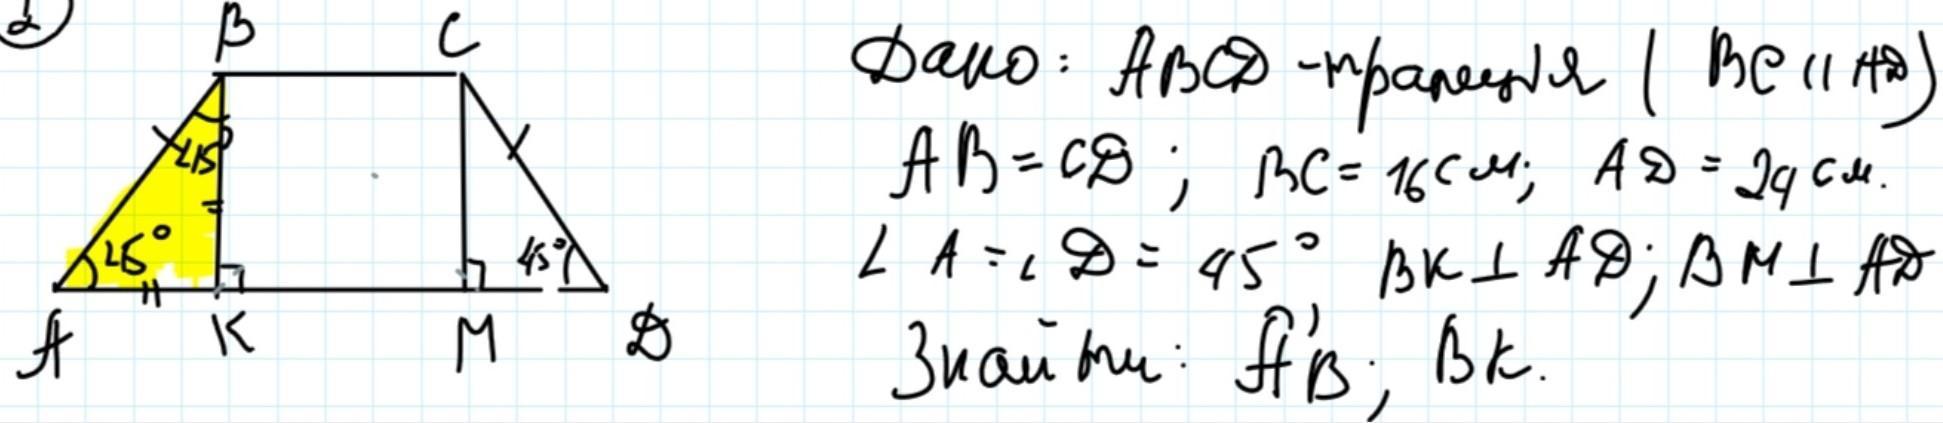 2
B C
45°
45° 45°
A K M D
Дано: ABCD - трапеція ( BC || AD )
AB = CD ; BC = 16 см; AD = 24 см.
∠ A = ∠ D = 45° BK ⊥ AD; BM ⊥ AD
Знайти: AB; BK.